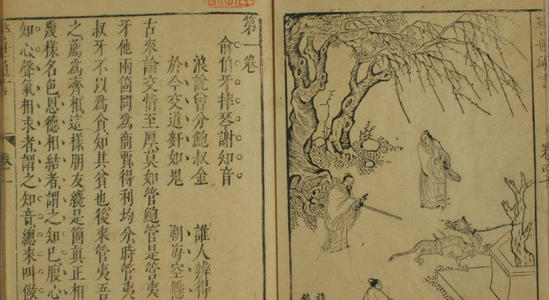 第 卷
俞伯牙摔琴謝知音
浪說曾分鮑叔金 誰人辨得
於今交道奸如鬼 湖海空懸
古來論交情至厚莫如管鮑管是管夷
牙他兩箇同為商賈得利均分時管夷
叔牙不以為貪知其貧也後來管夷吾
之薦為齊相這樣朋友纔是箇真正相
幾樣名色恩德相結者謂之知己腹心
知心聲氣相求者謂之知音總來叫做
警世通言 卷一